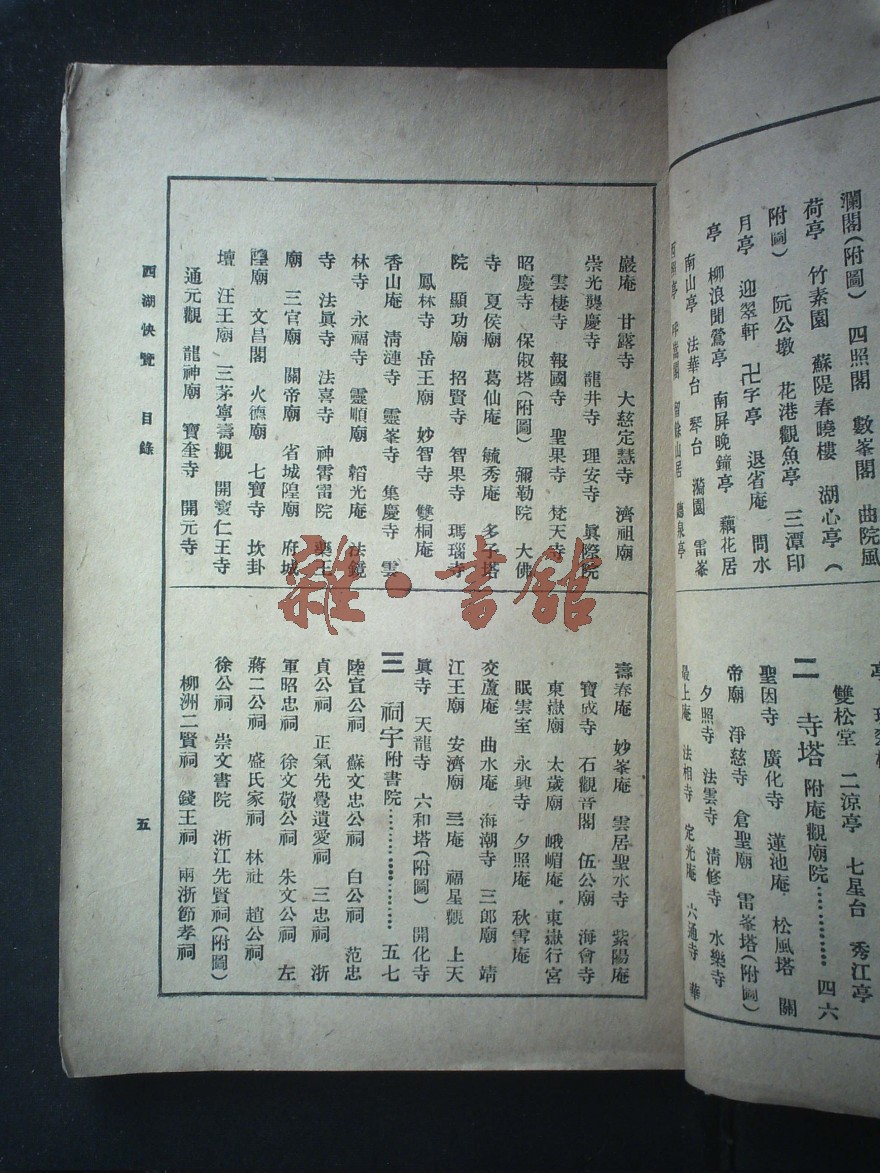 瀾閣(附圖) 四照閣 數峯閣 曲院風
荷亭 竹素園 蘇隄春曉樓 湖心亭(
附圖) 阮公墩 花港觀魚亭 三潭印
月亭 迎翠軒 卍字亭 退省庵 問水
亭 柳浪聞鶯亭 南屏晚鐘亭 藕花居
南山亭 法華台 琴台 漪園 雷峯
西照亭
雙松堂 二涼亭 七星台 秀江亭
二 寺塔附庵觀廟院 四六
聖因寺 廣化寺 蓮池庵 松風塔 關
帝廟 淨慈寺 倉聖廟 雷峯塔(附圖)
夕照寺 法雲寺 清修寺 水樂寺
最上庵 法相寺 定光庵 六通寺 華
巖庵 甘露寺 大慈定慧寺 濟祖廟
崇光襲慶寺 龍井寺 理安寺 眞際院
雲棲寺 報國寺 聖果寺 梵天寺
昭慶寺 保俶塔(附圖) 彌勒院 大佛
寺 夏侯廟 葛仙庵 毓秀庵 多子塔
院 顯功廟 招賢寺 智果寺 瑪瑙寺
鳳林寺 岳王廟 妙智寺 雙桐庵
香山庵 清漣寺 靈峯寺 集慶寺 雲
林寺 永福寺 靈順廟 韜光庵 法鏡
寺 法眞寺 法喜寺 神霄雷院 藥王
廟 三官廟 關帝廟 省城隍廟 府城
隍廟 文昌閣 火德廟 七寶寺 坎卦
壇 汪王廟 三茅寧壽觀 開寶仁王寺
通元觀 龍神廟 寶奎寺 開元寺
壽春庵 妙峯庵 雲居聖水寺 紫陽庵
寶成寺 石觀音閣 伍公廟 海會寺
東嶽廟 太歲廟 峨嵋庵 東嶽行宮
眠雲室 永興寺 夕照庵 秋雪庵
交蘆庵 曲水庵 海潮寺 三郎廟 靖
江王廟 安濟廟 三庵 福星觀 上天
眞寺 天龍寺 六和塔(附圖) 開化寺
三 祠宇附書院 五七
陸宣公祠 蘇文忠公祠 白公祠 范忠
貞公祠 正氣先覺遺愛祠 三忠祠 浙
軍昭忠祠 徐文敬公祠 朱文公祠 左
蔣二公祠 盛氏家祠 林社 趙公祠
徐公祠 崇文書院 浙江先賢祠(附圖)
柳洲二賢祠 錢王祠 兩浙節孝祠
西湖快覽 目錄
五
雜·書館